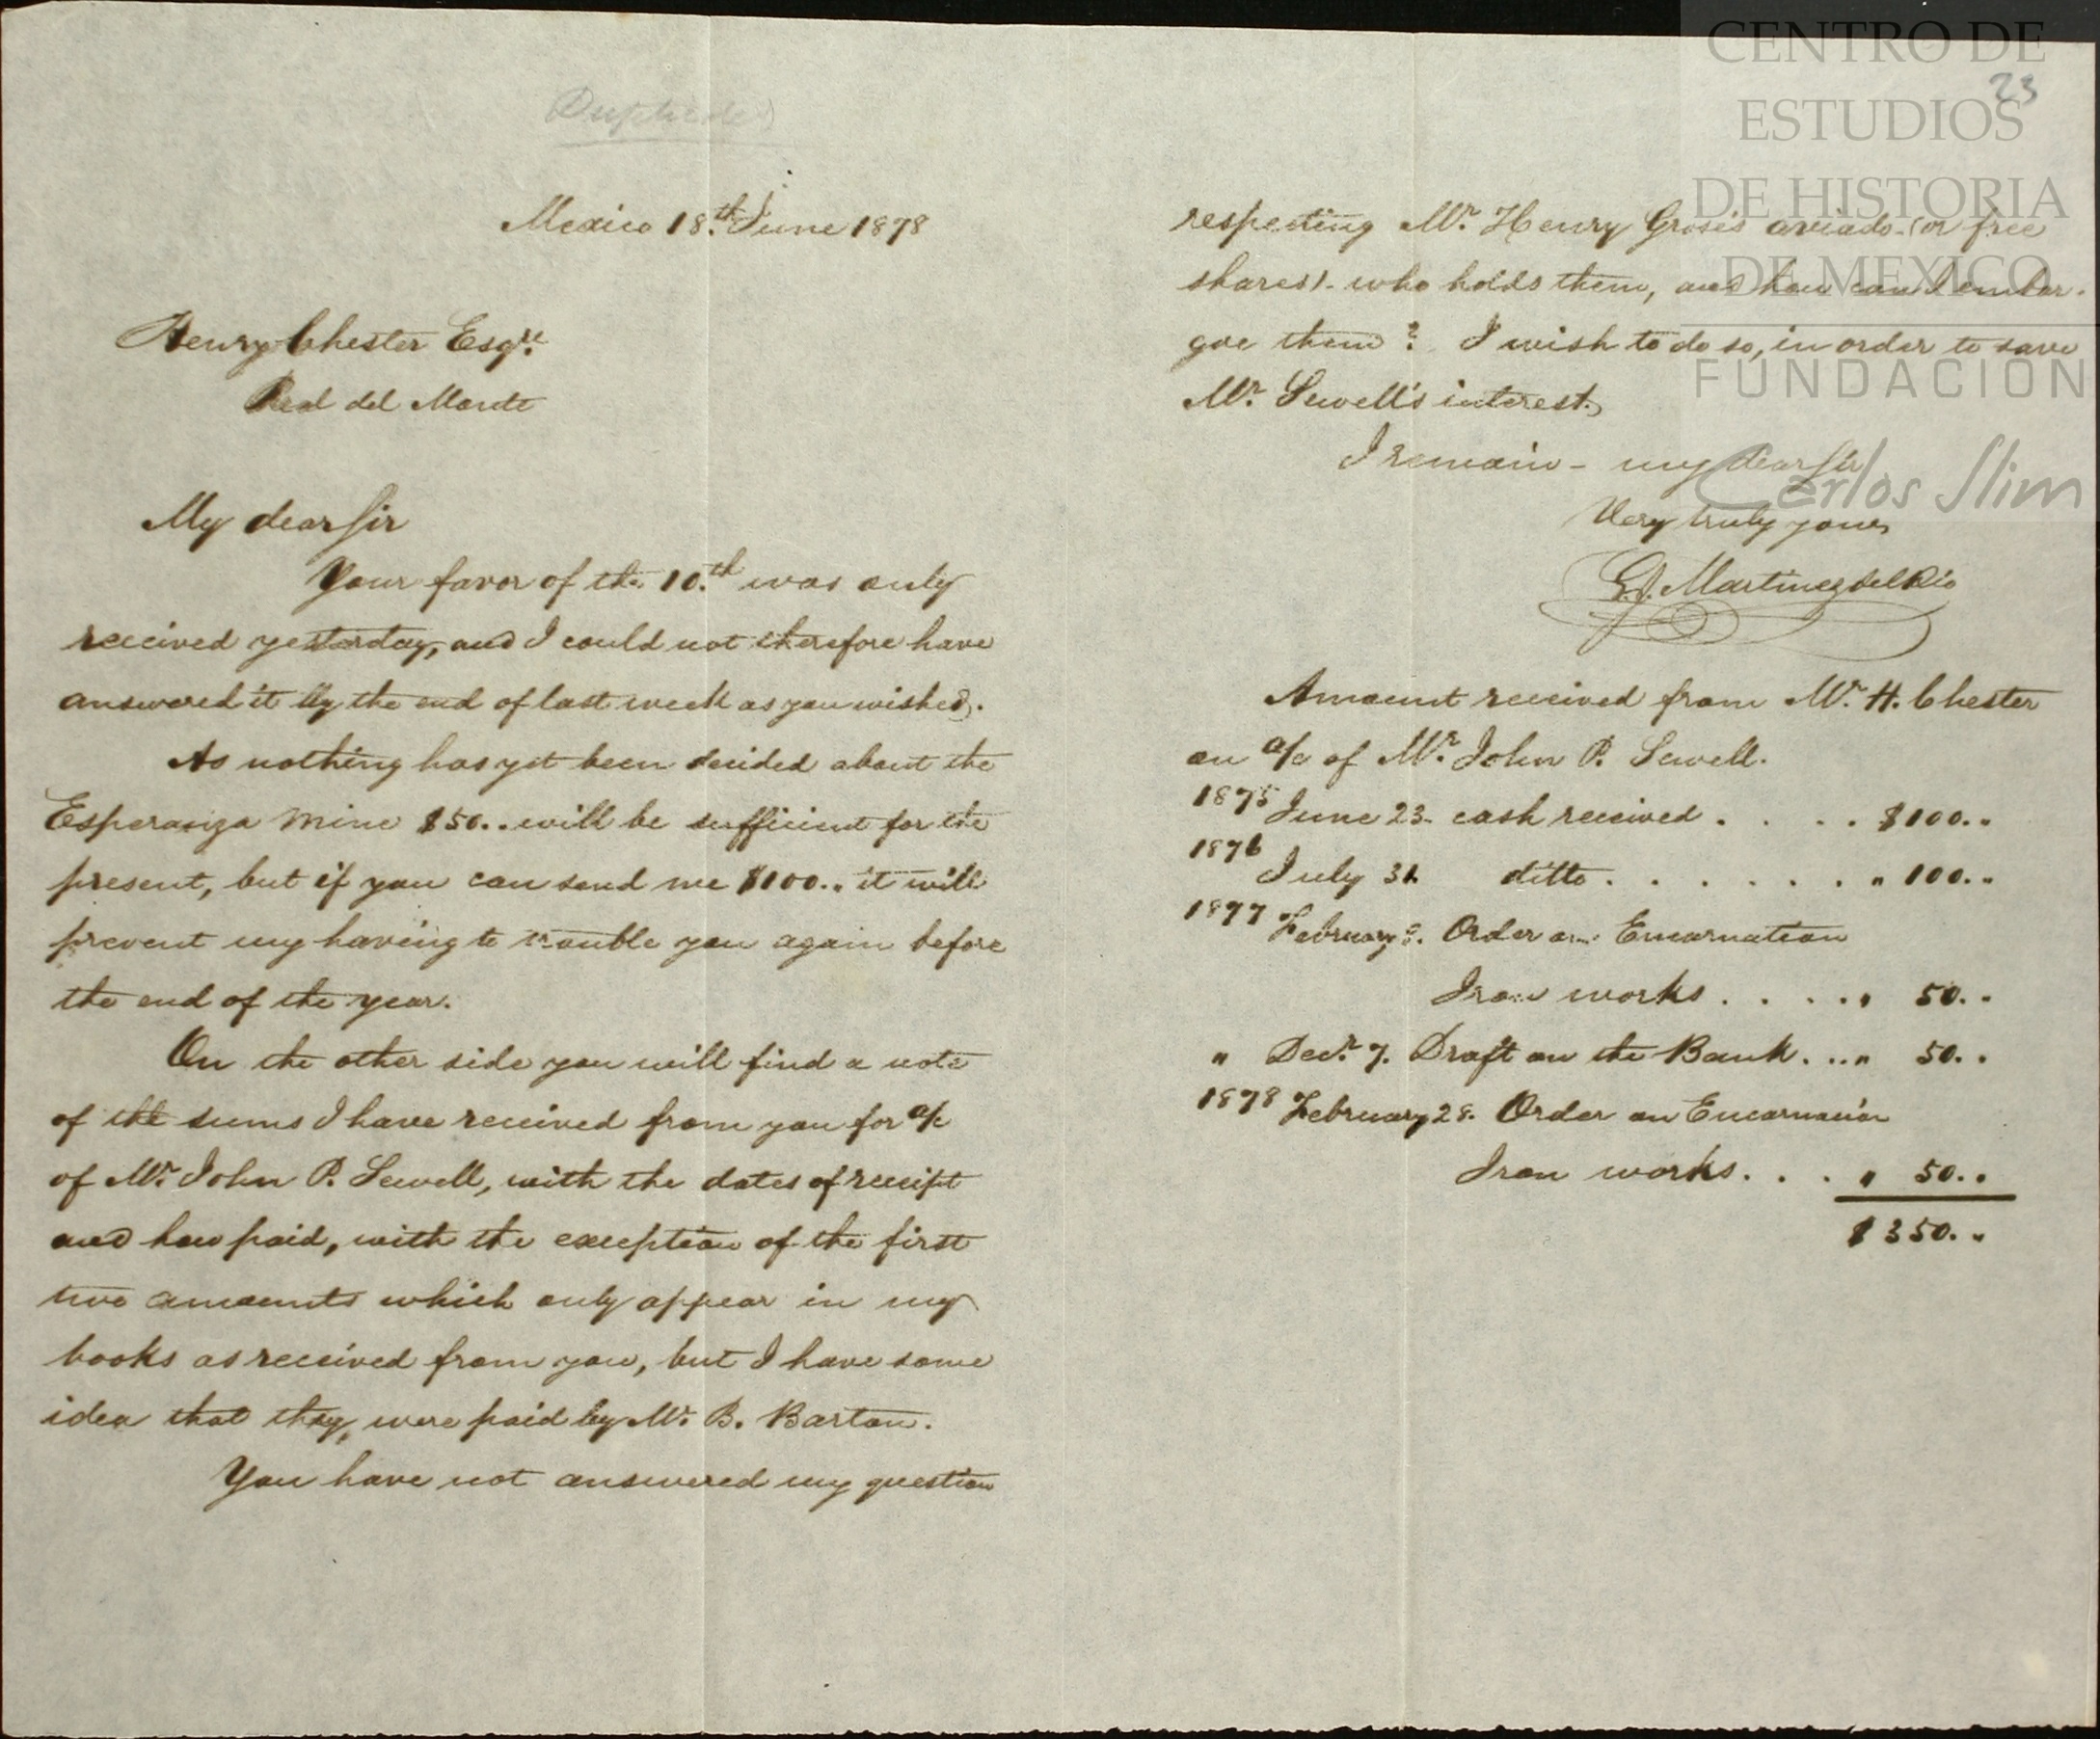 Duplicated
Mexico 18.th June 1878
Henry Chester Esqre.
Real del Monte
My dear Sir
Your favor of the 10.th was only
received yesterday, and I could not therefore have
answered it by the end of last week as you wished.
As nothing has yet been decided about the
Esperanza Mine $50.. will be sufficient for the
present, but if you can send me $100.. it will
prevent my having to trouble you again before
the end of the year.
On the other side you will find a note
of the sums I have received from you for a/c
of Mr. John P. Sewell, with the dates of receipt
and how paid, with the exception of the first
two amounts which only appear in my
books as received from you, but I have some
idea that they, were paid by Mr. B. Barton.
You have not answered my question
23
respecting Mr. Henry Grose's aviado (or free
shares) - who holds them, and how can I embar-
goe them? I wish to do so, in order to save
Mr. Sewell's interest.
I remain - my dear Sir
Very truly yours
G. J. Martinez del Rio
Amount received from Mr. H. Chester
on a/c of Mr. John P. Sewell.
1875 June 23. cash received . . . . $100..
1876 July 31. ditto . . . . . . . " 100..
1877 February . Order on Encarnation
Iron works . . . . " 50..
" Decr. 7. Draft on the Bank . . . " 50..
1878 February 28. Order on Encarnacion
Iron works . . . " 50..
$350..
CENTRO DE
ESTUDIOS
DE HISTORIA
DE MEXICO
FUNDACIÓN
Carlos Slim